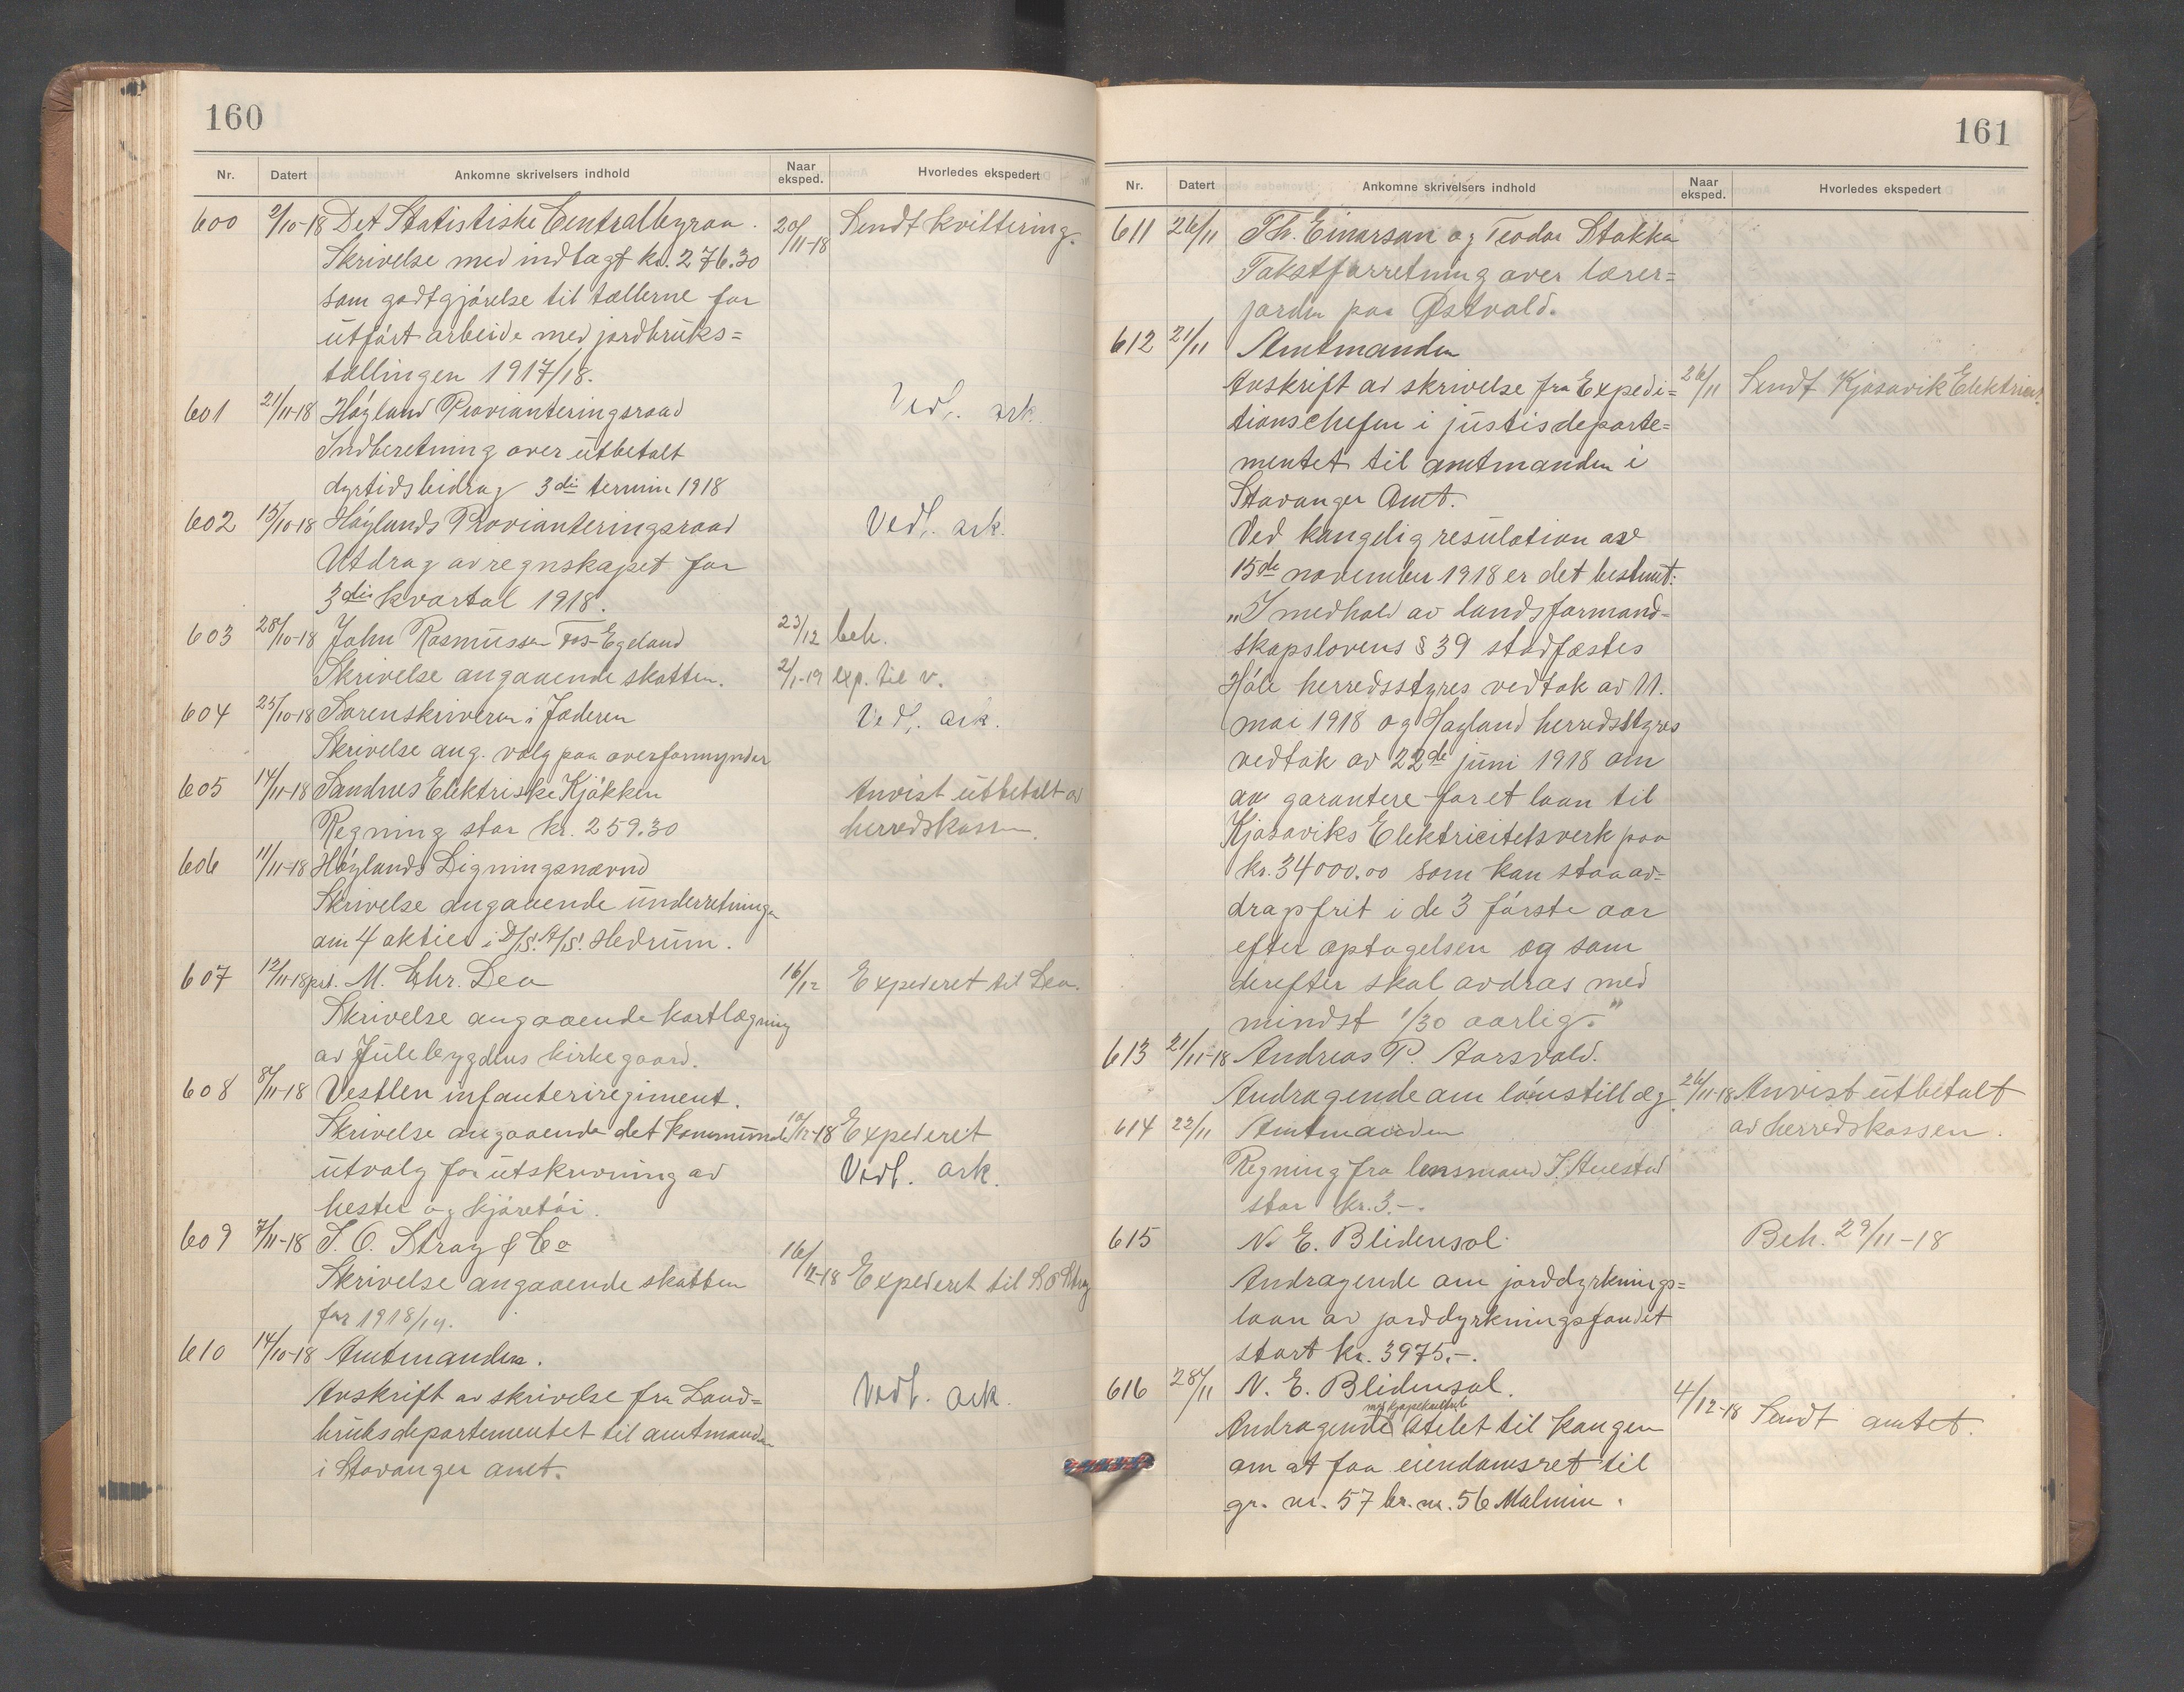 160
Nr. Datert Ankomne skrivelsers indhold Naar eksped. Hvorledes ekspedert
600 2/10-18 Det Statistiske Centralbyraa. 20/11-18 Sendt kvittering.
Skrivelse med indlagt kr. 276.30
som godtgjørelse til tællerne for
utført arbeide med jordbruks=
tællingen 1917/18.
601 21/11-18 Høyland Provianteringsraad Vedl. ark.
Indberetning over utbetalt
dyrtidsbidrag 3die termin 1918
602 15/10-18 Høylands Provianteringsraad Vedl. ark.
Utdrag av regnskapet for
3die kvartal 1918.
603 28/10-18 John Rasmussen Fos-Egeland 23/12 beh.
Skrivelse angaaende skatten. 2/1-19 exp. til v.
604 25/10-18 Sorenskriveren i Jæderen Vedl. ark.
Skrivelse ang. valg paa overformynder
605 14/11-18 Sandnes Elektriske Kjøkken Anvist utbetalt av
Regning stor kr. 259.30 herredskassen.
606 11/11-18 Høylands Ligningsnævnd
Skrivelse angaaende underretninger
om 4 aktier i D/S. A/S. Hedrum.
607 12/11-18 M. Chr. Lea 16/12 Expederet til Lea.
Skrivelse angaaende kartlægning
av Julebygdens kirkegaard.
608 8/11-18 Vestlen infanteriregiment.
Skrivelse angaaende det kommunale 10/12-18 Expederet
utvalg for utskrivning av Vedl. ark.
hester og kjøretøi.
609 7/11-18 S. O. Stray & Co
Skrivelse angaaende skatten 16/12-18 Expederet til S O Stray
for 1918/19.
610 14/10-18 Amtmanden.
Avskrift av skrivelse fra Land= Vedl. ark.
bruksdepartementet til amtmanden
i Stavanger amt.
161
Nr. Datert Ankomne skrivelsers indhold Naar eksped. Hvorledes ekspedert
611 26/11 Th. Einarsen og Teodor Stokka
Takstforretning over lærer=
jorden paa Østvold.
612 21/11 Amtmanden
Avskrift av skrivelse fra Expedi= 26/11 Sendt Kjosavik Elektricit.
tionschefen i justisdeparte=
mentet til amtmanden i
Stavanger Amt.
Ved kongelig resulation av
15de november 1918 er det bestemt:
„I medhold av landsformand=
skapslovens § 39 stadfæstes
Høle herredsstyres vedtak av 11.
mai 1918 og Høyland herredsstyres
vedtak av 22de juni 1918 om
aa garantere for et laan til
Kjosaviks Elektricitetsverk paa
kr. 34000.00 som kan staa av=
dragsfrit i de 3 første aar
efter optagelsen og som
derefter skal avdras med
mindst 1/30 aarlig."
613 21/11-18 Andreas P. Aarsvold.
Andragende om lønstillæg. 26/11-18 Anvist utbetalt
614 22/11 Amtmanden av herredskassen.
Regning fra lensmand T. Auestad
stor kr. 3.-.
615 N. E. Blidensol. Beh. 29/11-18
Andragende om jorddyrknings=
laan av jorddyrkningsfondet
stort kr. 3975.-.
616 28/11 N. E. Blidensol. 4/12-18 Sendt amtet.
med kjøpekontrakt
Andragende stilet til Kongen
om at faa eiendomsret til
gr. nr. 57 br. nr. 56 Malmin.